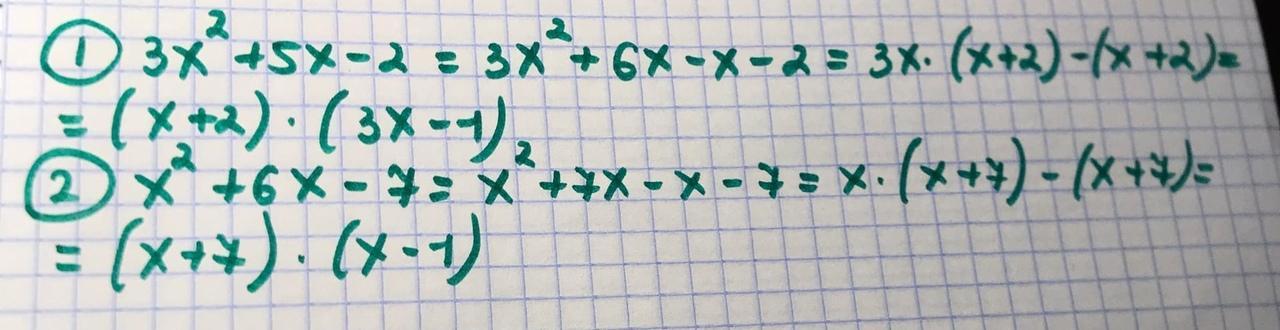 ① 3x² + 5x - 2 = 3x² + 6x - x - 2 = 3x · (x+2) - (x+2) =
= (x+2) · (3x - 1)
② x² + 6x - 7 = x² + 7x - x - 7 = x · (x+7) - (x+7) =
= (x+7) · (x-1)